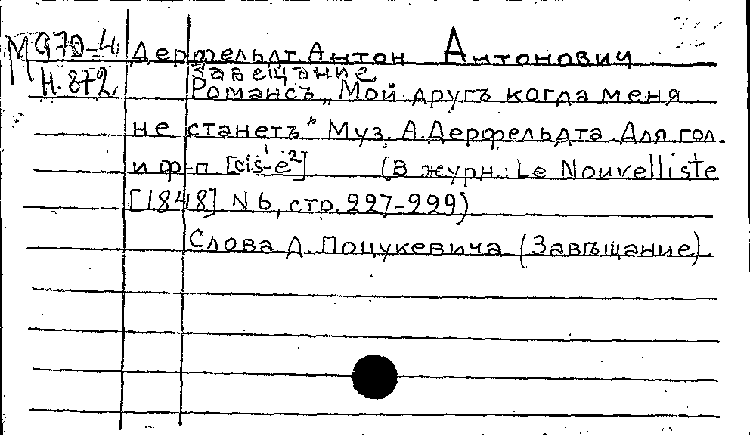 М 970-4 Дерфельдт Антон Антонович
Завещание
Н. 872 Романсъ „Мой другъ когда меня
не станетъ" Муз. А. Дерфельдта. Для гол.
и ф-п [cis¹-e²] (В журн.: Le Nouvelliste
[1848] N 6, стр. 227-229)
Слова А. Поцукевича (Завѣщание).